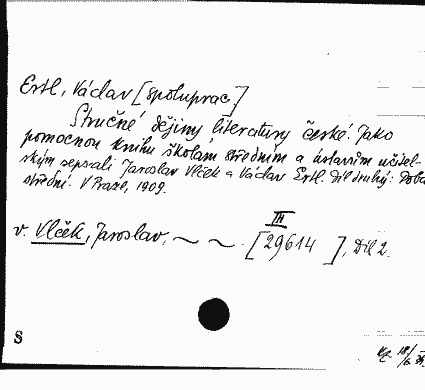 Ertl, Václav [spoluprac.]
Stručné dějiny literatury české. Jako
pomocnou knihu školám středním a ústavům učitel-
ským sepsali Jaroslav Vlček a Václav Ertl. Díl druhý: Doba
střední. V Praze, 1909.
III
v. Vlček, Jaroslav, ~ ~. [29614 ], Díl 2.
S